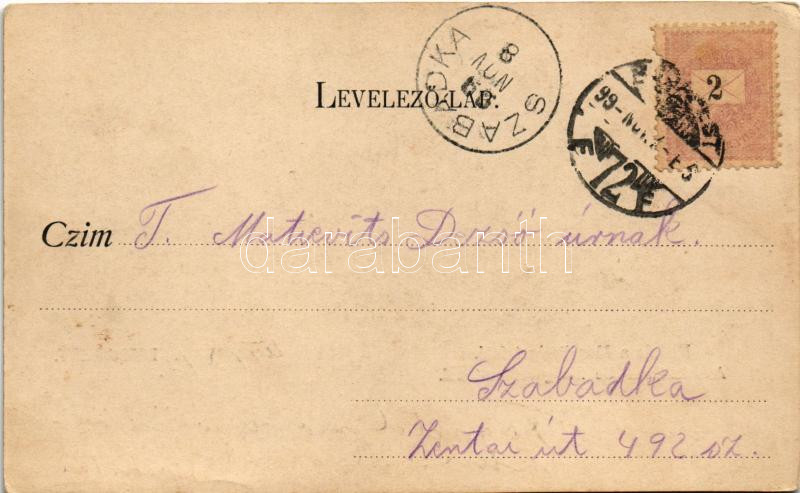 SZABADKA
8
NOV
99
LEVELEZŐ-LAP.
2
BUDAPEST
99-NOV.7-E5
72
Czim T. Matievits Dezső úrnak.
darabanth
Szabadka
Zentai út 492 sz.